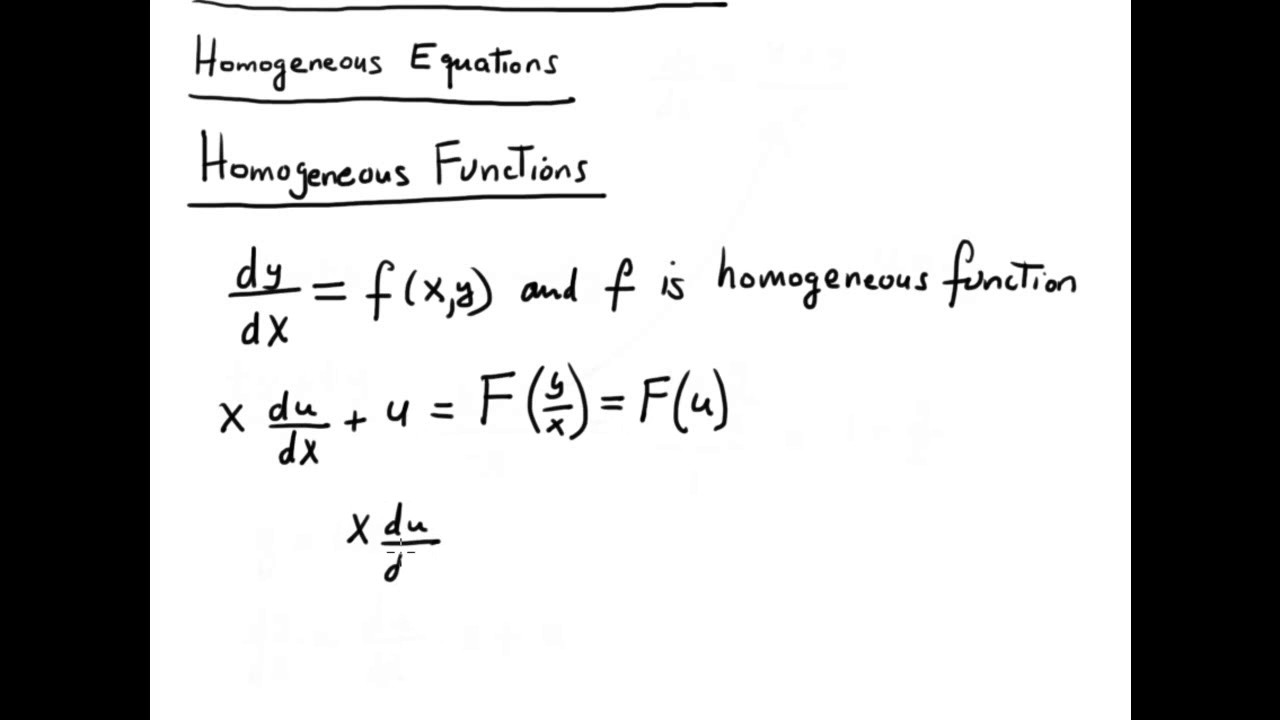 Homogeneous Equations
Homogeneous Functions
dy/dx = f(x,y) and f is homogeneous function
x du/dx + u = F(y/x) = F(u)
x du/d